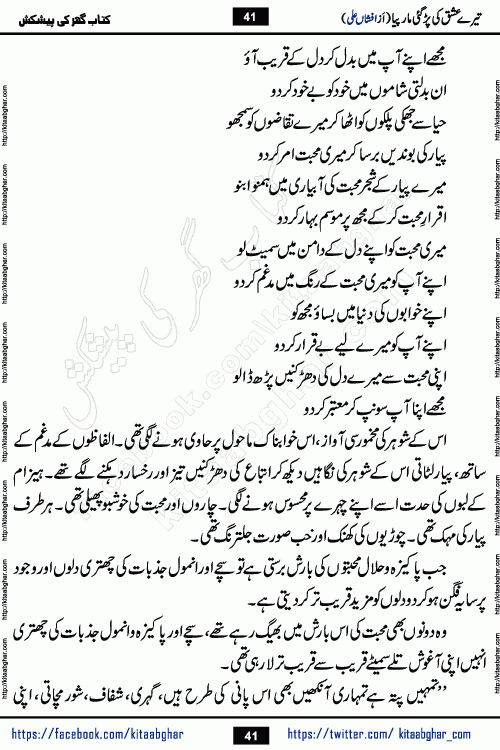 تیرے عشق کی پڑ گئی مار پیا (از افشاں علی)
41
کتاب گھر کی پیشکش
مجھے اپنے آپ میں بدل کر دل کے قریب آؤ
ان بدلتی شاموں میں خود کو بے خود کر دو
حیا سے جھکی پلکوں کو اٹھا کر میرے تقاضوں کو سمجھو
پیار کی بوندیں برسا کر میری محبت امر کر دو
میرے پیار کے شجر محبت کی آبیاری میں ہمنوا بنو
اقرارِ محبت کر کے مجھ پر موسم بہار کر دو
میری محبت کو اپنے دل کے دامن میں سمیٹ لو
اپنے آپ کو میری محبت کے رنگ میں مدغم کر دو
اپنے خوابوں کی دنیا میں بساؤ مجھ کو
اپنے آپ کو میرے لیے بے قرار کر دو
اپنی محبت سے میرے دل کی دھڑکنیں پڑھ ڈالو
مجھے اپنا آپ سونپ کر معتبر کر دو
اس کے شوہر کی مخمور سی آواز، اس خوابناک ماحول پر حاوی ہونے لگی تھی۔ الفاظوں کے مدغم کے
ساتھ، پیار لٹاتی اس کے شوہر کی نگاہیں دیکھ کر اتباع کی دھڑکنیں تیز اور رخسار دہکنے لگے تھے۔ ہیزام
کے لبوں کی حدت اسے اپنے چہرے پر محسوس ہونے لگی۔ چاروں اور محبت کی خوشبو پھیلی تھی۔ ہر طرف
پیار کی مہک تھی۔ چوڑیوں کی کھنک اور خوب صورت جلترنگ تھی۔
جب پاکیزہ و حلال محبتوں کی بارش برستی ہے تو سچے اور انمول جذبات کی چھتری دلوں اور وجود
پر سایہ فگن ہو کر دو دلوں کو مزید قریب تر کر دیتی ہے۔
وہ دونوں بھی محبت کی اس بارش میں بھیگ رہے تھے، سچے اور پاکیزہ و انمول جذبات کی چھتری
انہیں اپنی آغوش تلے سمیٹے قریب سے قریب تر لا رہی تھی۔
’’تمہیں پتہ ہے تمہاری آنکھیں بھی اس پانی کی طرح ہیں، گہری، شفاف، شور مچاتی، اپنی
https://facebook.com/kitaabghar
41
https://twitter.com/kitaabghar_com
http://kitaabghar.com
کتاب گھر کی پیشکش